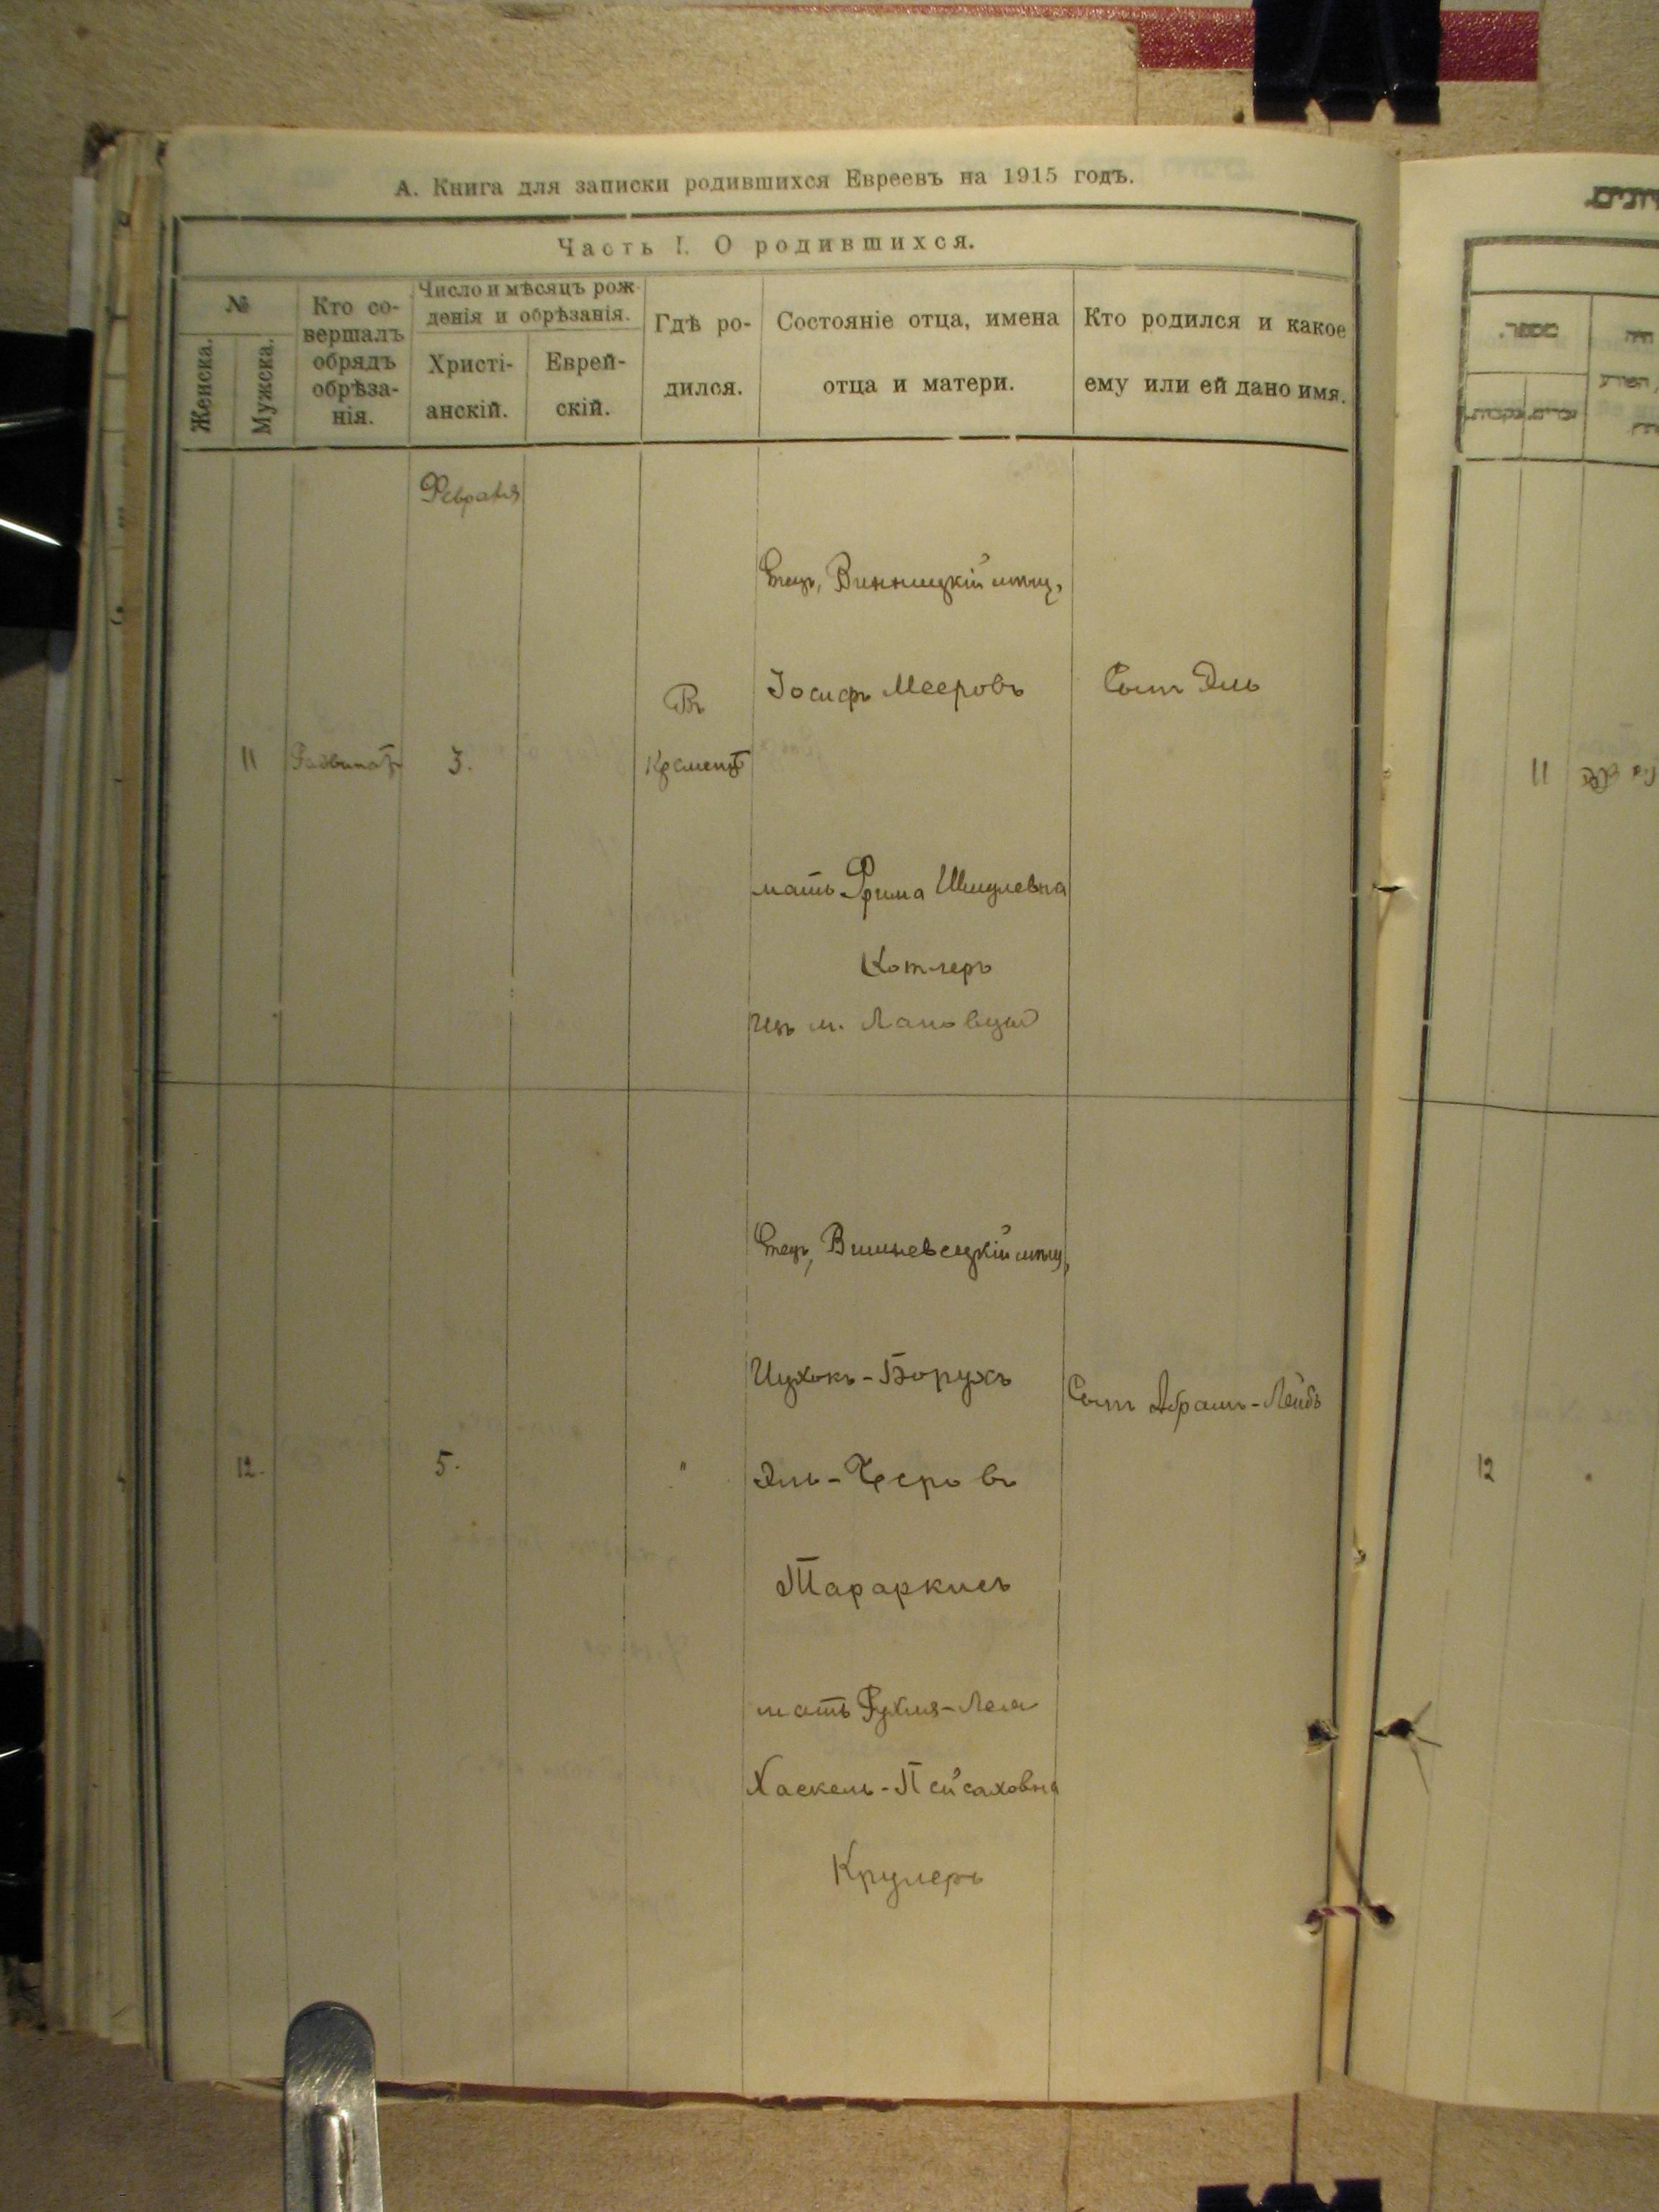 А. Книга для записки родившихся Евреевъ на 1915 годъ.
Часть I. О родившихся.
№
Женска.
Мужска.
Кто со-
вершалъ
обрядъ
обрѣза-
нія.
Число и мѣсяцъ рож-
денія и обрѣзанія.
Христі-
анскій.
Еврей-
скій.
Гдѣ ро-
дился.
Состояніе отца, имена
отца и матери.
Кто родился и какое
ему или ей дано имя.
Февраля
11
3.
Въ
Отецъ, Винницкій мѣщ,
Іосифъ Мееровъ
мать Фрима Шмулевна
Котлеръ
Изъ м. Лановцы
Сынъ Эль
12.
5.
"
Отецъ, Вишневецкій мѣщ,
Ицхокъ-Борухъ
Эль-Хееровъ
Тараркисъ
мать Рухля-Лея
Хаскель-Пейсаховна
Крулеръ
Сынъ Абрамъ-Лейбъ
מספר.
11
12